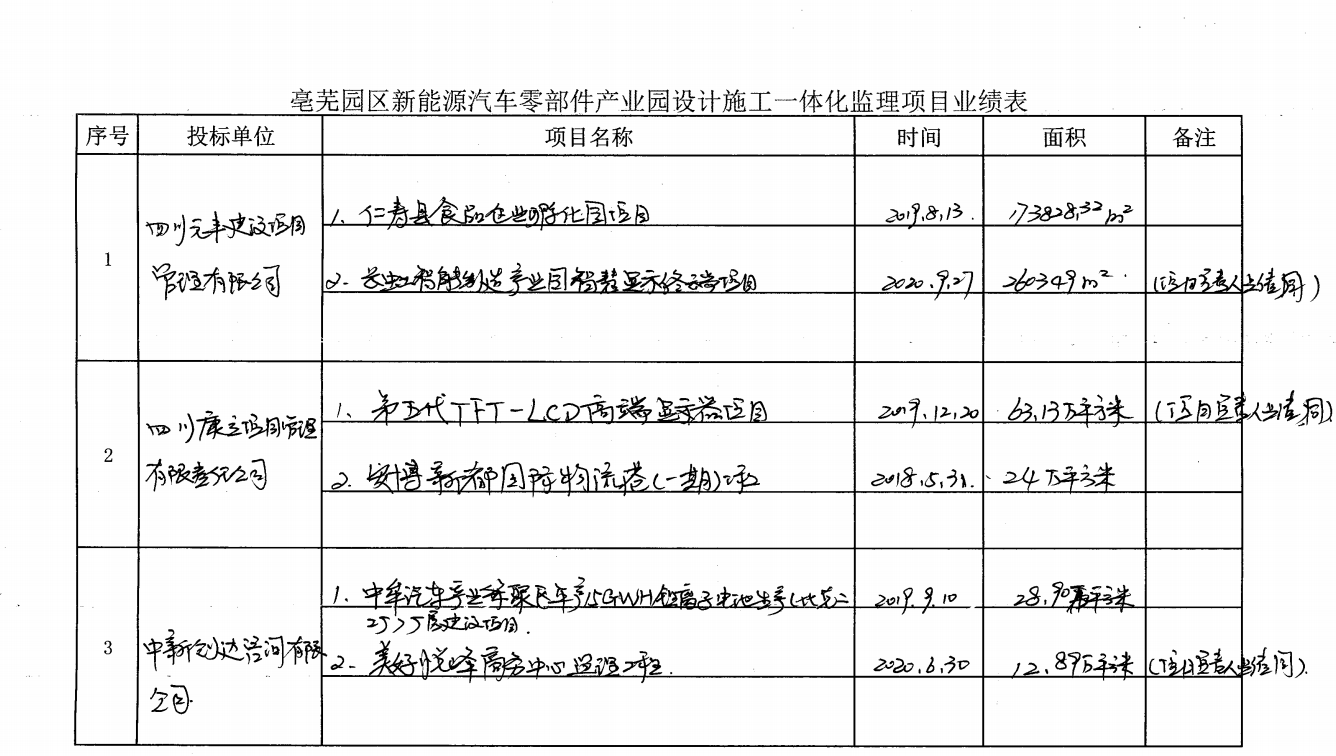 亳芜园区新能源汽车零部件产业园设计施工一体化监理项目业绩表
序号 投标单位 项目名称 时间 面积 备注
1 四川元丰建设项目管理有限公司
1、仁寿县食品企业孵化园项目 2019.8.13. 173828.32m²
2、长虹智能制造产业园智慧显示终端项目 2020.9.27 260349m² (项目负责人业绩同)
2 四川康立项目管理有限责任公司
1、第五代TFT-LCD高端显示器项目 2019.12.20 63.13万平方米 (项目负责人业绩同)
2、安博新都国际物流港(一期)工程 2018.5.31. 24万平方米
3 中新创达咨询有限公司
1、中牟汽车产业集聚区年产15GWH锂离子电池生产
建设项目. 2019.9.10 28.90万平方米
2、美好悦峰商务中心监理工程. 2020.6.30 12.89万平方米 (项目负责人业绩同).